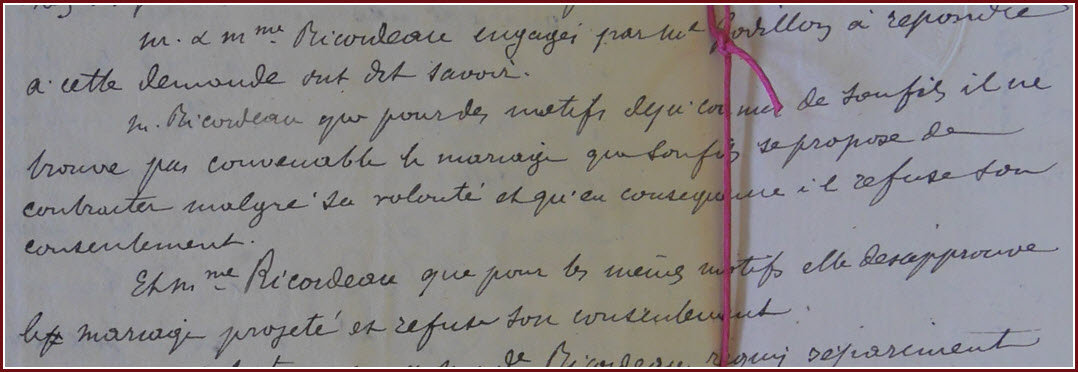 M. & Mme Ricordeau engagés par Me Godillon à repondre
a cette demande ont dit savoir.
M. Ricordeau que pour des motifs deja connus de son fils il ne
trouve pas convenable le mariage que son fils se propose de
contracter malgré sa volonté et qu'en consequence il refuse son
consentement.
Et Mme Ricordeau que pour les mêmes motifs elle desapprouve
le mariage projeté et refuse son consentement.
de Ricordeau requis séparément